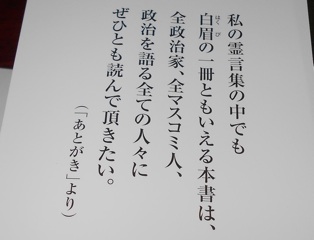 私の霊言集の中でも
白眉の一冊ともいえる本書は、
はくび
全政治家、全マスコミ人、
政治を語る全ての人々に
ぜひとも読んで頂きたい。
(「あとがき」より)